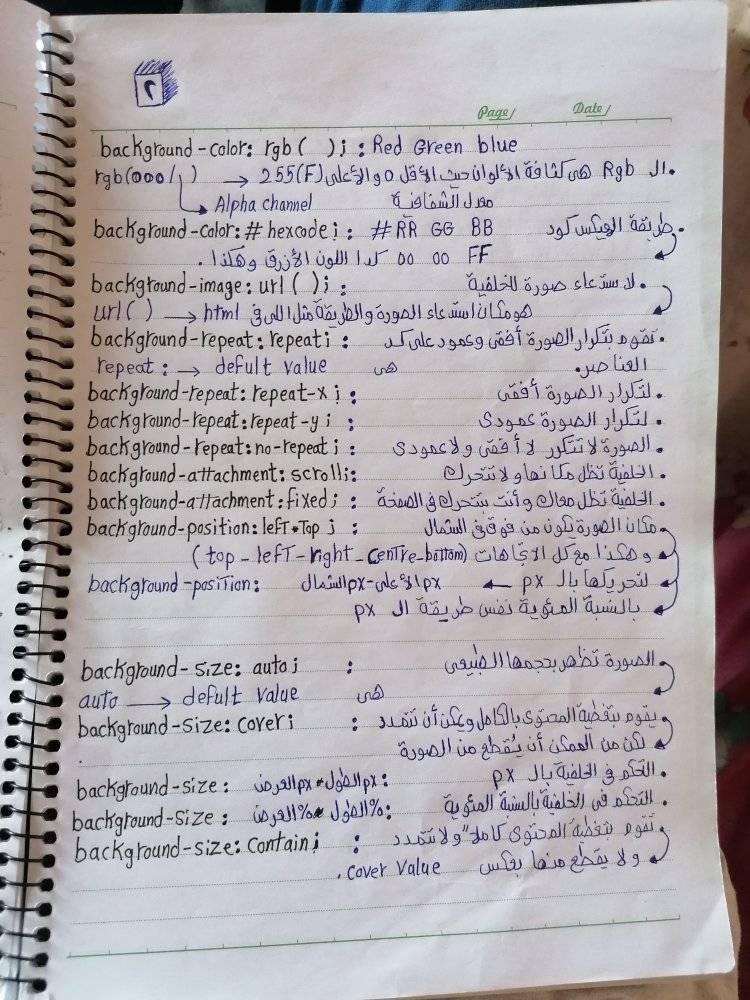 ٢
Page/ Date/
background-color: rgb( ); : Red Green blue
.ال Rgb هى كثافة الألوان حيث الأقل 0 والأعلى 255(F) ← rgb(000/ )
Alpha channel معدل الشفافية
background-color: # hexcode; : #RR GG BB .طريقة الهيكس كود
00 00 FF كدا اللون الأزرق وهكذا .
background-image: url( ); : .لاستدعاء صورة للخلفية
url( ) → html هو مكان استدعاء الصورة والطريقة مثل اللى فى
background-repeat: repeat; : .تقوم بتكرار الصورة أفقى وعمود على كد
repeat: → defult value هى العناصر.
background-repeat: repeat-x; : .لتكرار الصورة أفقى
background-repeat: repeat-y; : .لتكرار الصورة عمودى
background-repeat: no-repeat; : .الصورة لا تتكرر لا أفقى ولا عمودى
background-attachment: scroll;: .الخلفية تظل مكانها ولا تتحرك
background-attachment: fixed; : .الخلفية تظل معاك وأنت بتتحرك فى الصفحة
background-position: left•Top ; : مكان الصورة يكون من فوق فى الشمال
وهكذا مع كل الاتجاهات (top - left - right - centre - bottom)
background-position: لتحريكها بال px ← pxالأعلى-pxالشمال
بالنسبة المئوية نفس طريقة ال px
background-size: auto; : .الصورة تظهر بحجمها الطبيعى
auto → defult value هى
background-size: cover; : يقوم بتغطية المحتوى بالكامل ويمكن أن تتمدد
لكن من الممكن أن يُقطع من الصورة .
background-size: pxالطول•pxالعرض: .التحكم فى الخلفية بال px
background-size: %الطول•%العرض: .التحكم فى الخلفية بالنسبة المئوية
background-size: contain; : تقوم بتغطية المحتوى كاملاً ولا تتمدد
ولا يقطع منها بعكس cover value .